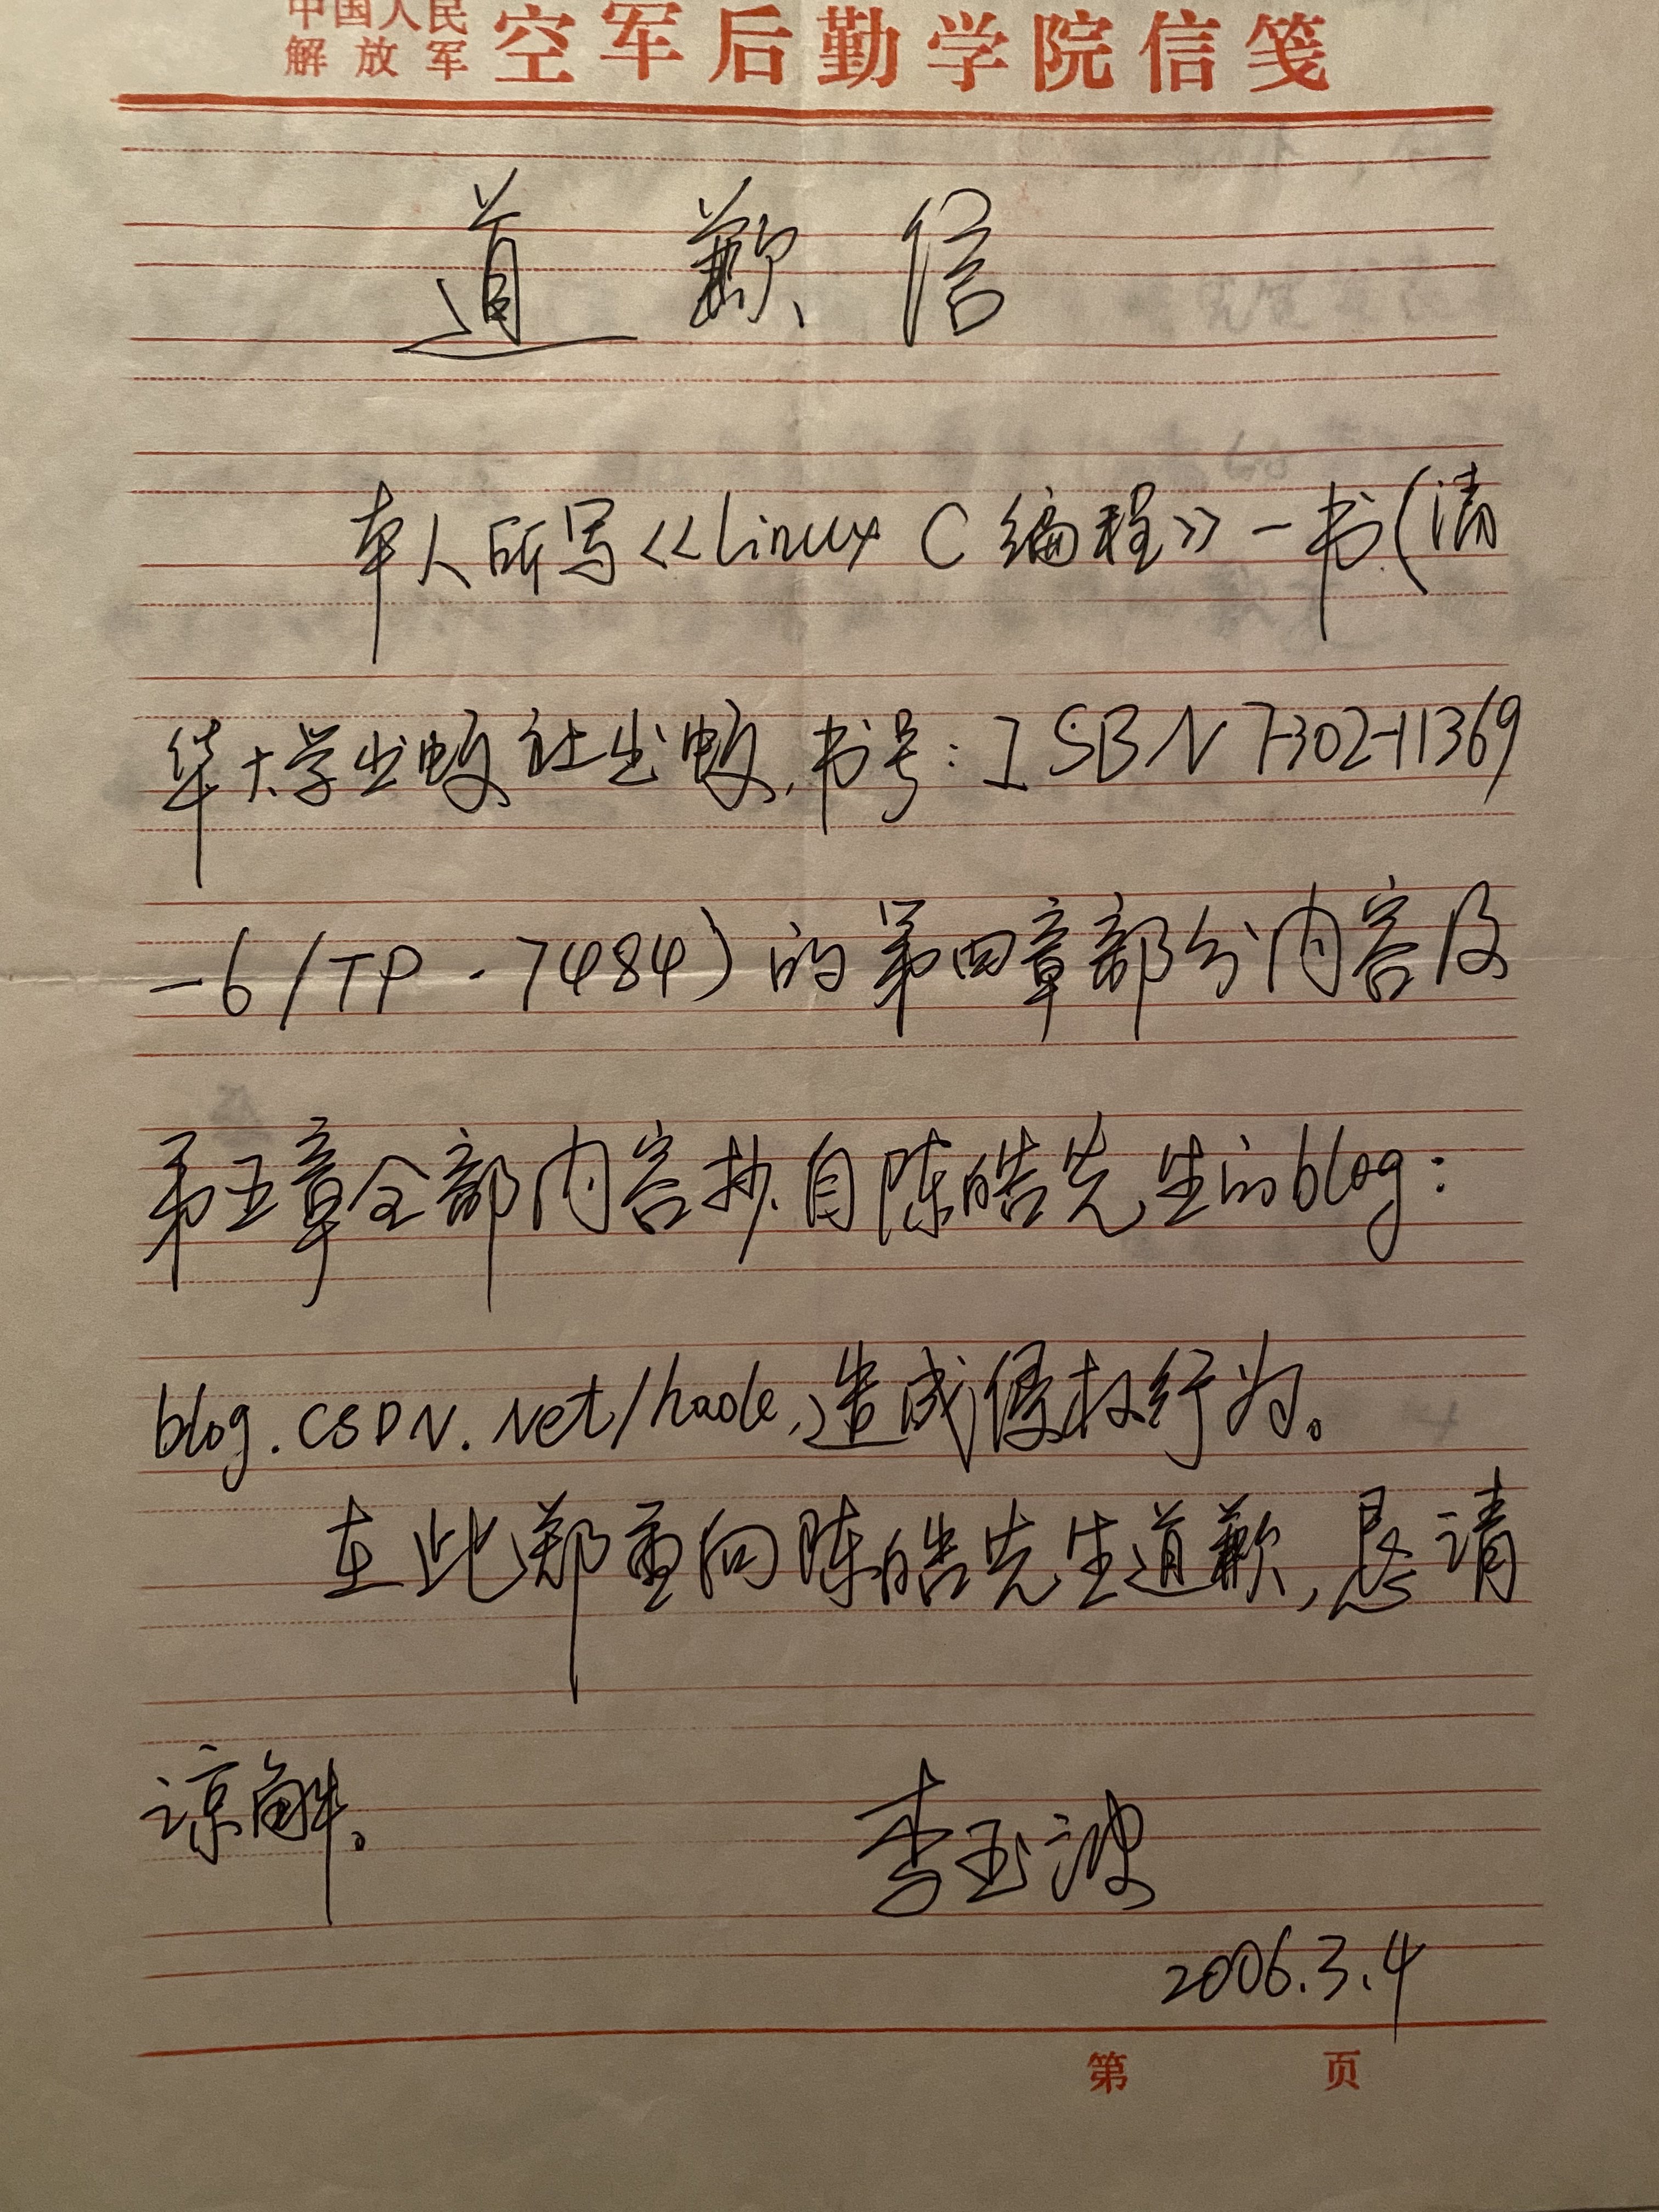 中国人民
解放军 空军后勤学院信笺
道歉信
本人所写《Linux C 编程》一书(清
华大学出版社出版,书号:ISBN 7-302-11369
-6/TP·7484)的第四章部分内容及
第五章全部内容抄自陈皓先生的blog:
blog.CSDN.Net/haoel,造成侵权行为。
在此郑重向陈皓先生道歉,恳请
谅解。
李玉波
2006.3.4
第 页